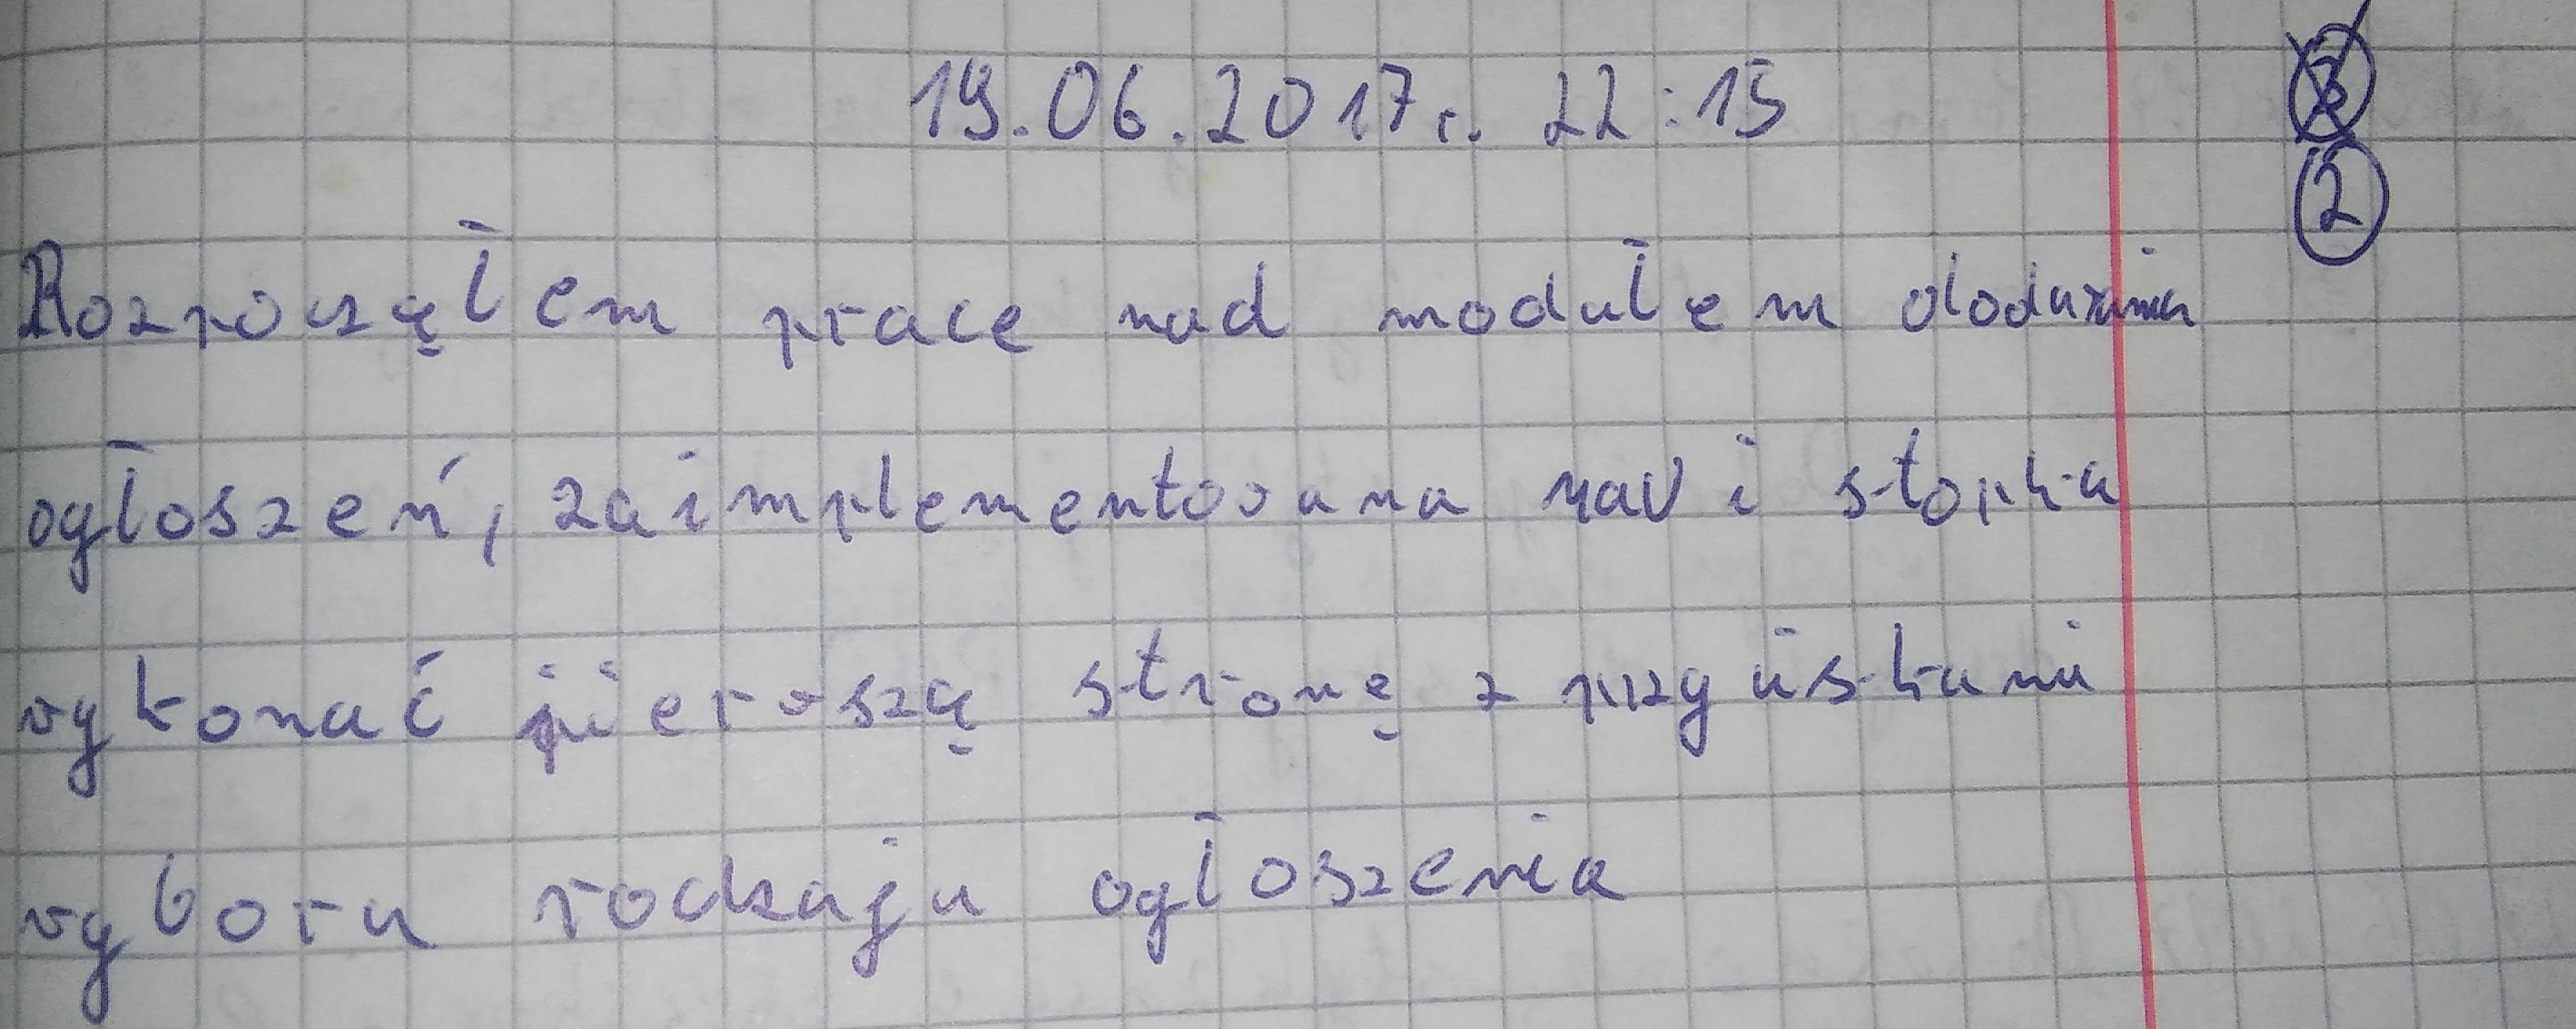 19.06.2017r. 22:15
2
Rozpocząłem prace nad modułem dodawania
ogłoszeń, zaimplementowana nav i stopka
wykonać pierwszą stronę z przyciskami
wyboru rodzaju ogłoszenia